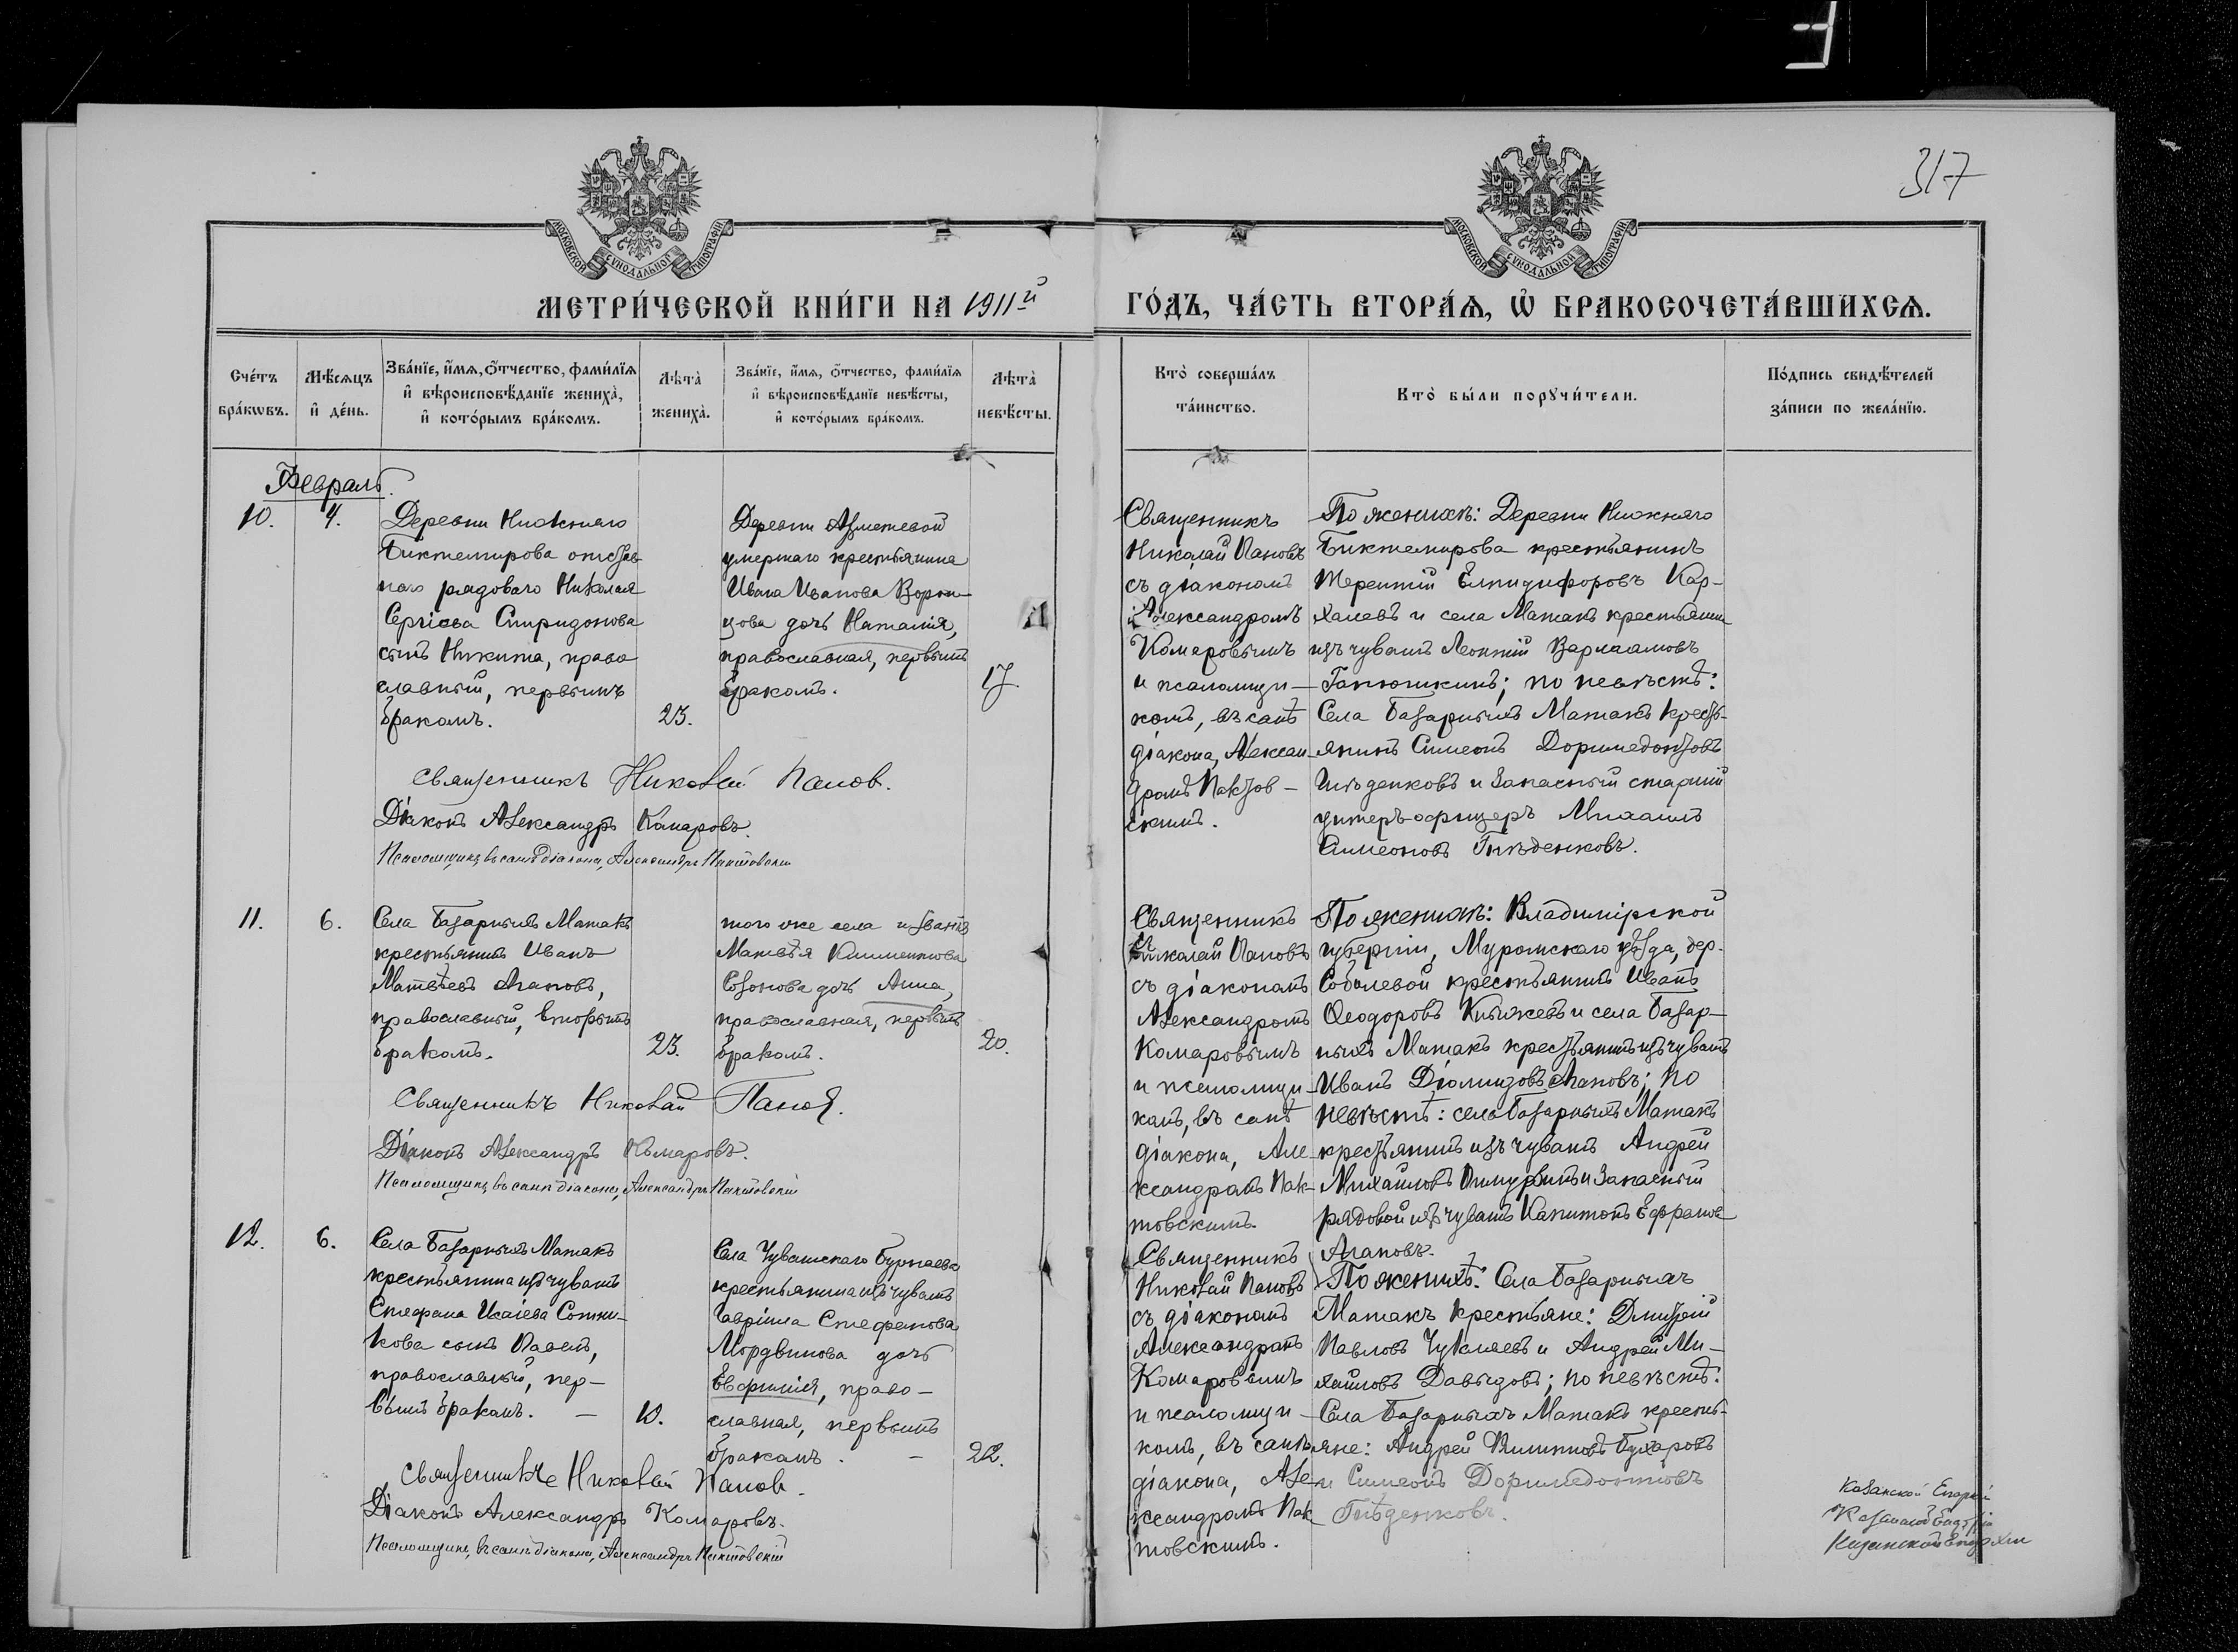 317
МОСКОВСКОЙ СѴНОДАЛЬНОЙ ТИПОГРАФІИ
МОСКОВСКОЙ СѴНОДАЛЬНОЙ ТИПОГРАФІИ
МЕТРИ́ЧЕСКОЙ КНИ́ГИ НА 1911й
ГО́ДЪ, ЧА́СТЬ ВТОРА́Ѧ, Ѡ҆ БРАКОСОЧЕТА́ВШИХСѦ.
Сче́тъ бра́кѡвъ.
Мѣ́сѧцъ и҆ де́нь.
Зва́нїе, и҆́мѧ, ѻ҆́тчество, фами́лїѧ
и҆ вѣроисповѣ́данїе жениха̀,
и҆ кото́рымъ бра́комъ.
Лѣта̀ жениха̀.
Зва́нїе, и҆́мѧ, ѻ҆́тчество, фами́лїѧ
и҆ вѣроисповѣ́данїе невѣ́сты,
и҆ кото́рымъ бра́комъ.
Лѣта̀ невѣ́сты.
Кто̀ соверша́лъ
та́инство.
Кто̀ бы́ли порꙋчи́тели.
По́дпись свидѣ́телей
за́писи по жела́нїю.
Февраль.
10.
4.
Деревни Нижняго
Биктемирова отстав
наго рядоваго Николая
Сергіева Спиридонова
сынъ Никита, право
славный, первымъ
бракомъ.
23.
Деревни Азметевой
умершаго крестьянина
Ивана Иванова Ворон-
цова дочь Наталія,
православная, первымъ
бракомъ.
17.
Священникъ
Николай Пановъ
съ діакономъ
Александромъ
Комаровымъ
и псаломщи-
комъ, въ санѣ
діакона, Алексан-
дромъ Пактов-
скимъ.
По женихѣ: Деревни Нижняго
Биктемирова крестьянинъ
Терентій Елпидифоровъ Кар-
халевъ и села Матакъ крестьянин
изъ чувашъ Леонтій Варлаамовъ
Ганюшкинъ; по невѣстѣ:
Села Базарныхъ Матакъ кресть-
янинъ Симеонъ Доримедонтовъ
Гнѣденковъ и запасный старшій
унтеръ-офицеръ Михаилъ
Симеоновъ Гнѣденковъ.
Священникъ Николай Панов.
Діаконъ Александръ Комаровъ.
Псаломщикъ, въ санѣ діакона, Александръ Пактовскій
11.
6.
Села Базарныхъ Матакъ
крестьянинъ Иванъ
Матвѣевъ Агаповъ,
православный, вторымъ
бракомъ.
23.
того же села и званія
Матвѣя Климентова
Созонова дочь Анна,
православная, первымъ
бракомъ.
20.
Священникъ
Николай Пановъ
съ діакономъ
Александромъ
Комаровымъ
и псаломщи-
комъ, въ санѣ
діакона, Але-
ксандромъ Пак-
товскимъ.
По женихѣ: Владимірской
губерніи, Муромскаго уѣзда, дер.
Соболевой крестьянинъ Иванъ
Ѳеодоровъ Княжевъ и села Базар-
ныхъ Матакъ крестьянинъ изъ чувашъ
Иванъ Діомидовъ Агаповъ; по
невѣстѣ: села Базарныхъ Матакъ
крестьянинъ изъ чувашъ Андрей
Михайловъ и запасный
рядовой изъ чувашъ Капитонъ Ефремов
Агаповъ.
Священникъ Николай Панов.
Діаконъ Александръ Комаровъ.
Псаломщикъ, въ санѣ діакона, Александръ Пактовскій
12.
6.
Села Базарныхъ Матакъ
крестьянина изъ чувашъ
Стефана Исаіева Сотни-
кова сынъ Павелъ,
православный, пер-
вымъ бракомъ. —
Села Чувашскаго Бурнаева
крестьянина изъ чувашъ
Гавріила Стефанова
Мордвинова дочь
Евфимія, право-
славная, первымъ
бракомъ. —
22.
Священникъ
Николай Пановъ
съ діакономъ
Александромъ
Комаровымъ
и псаломщи-
комъ, въ санѣ
діакона, Але-
ксандромъ Пак-
товскимъ.
По женихѣ: Села Базарныхъ
Матакъ крестьяне: Дмитрій
Павловъ Чуклаевъ и Андрей Ми-
хайловъ Давыдовъ; по невѣстѣ:
Села Базарныхъ Матакъ кресть-
яне: Андрей Филипповъ Бухаровъ
и Симеонъ Доримедонтовъ
Гнѣденковъ.
Священникъ Николай Панов.
Діаконъ Александръ Комаровъ.
Псаломщикъ, въ санѣ діакона, Александръ Пактовскій
Казанской Епархіи
Казанской Епархіи
Казанской Епархіи